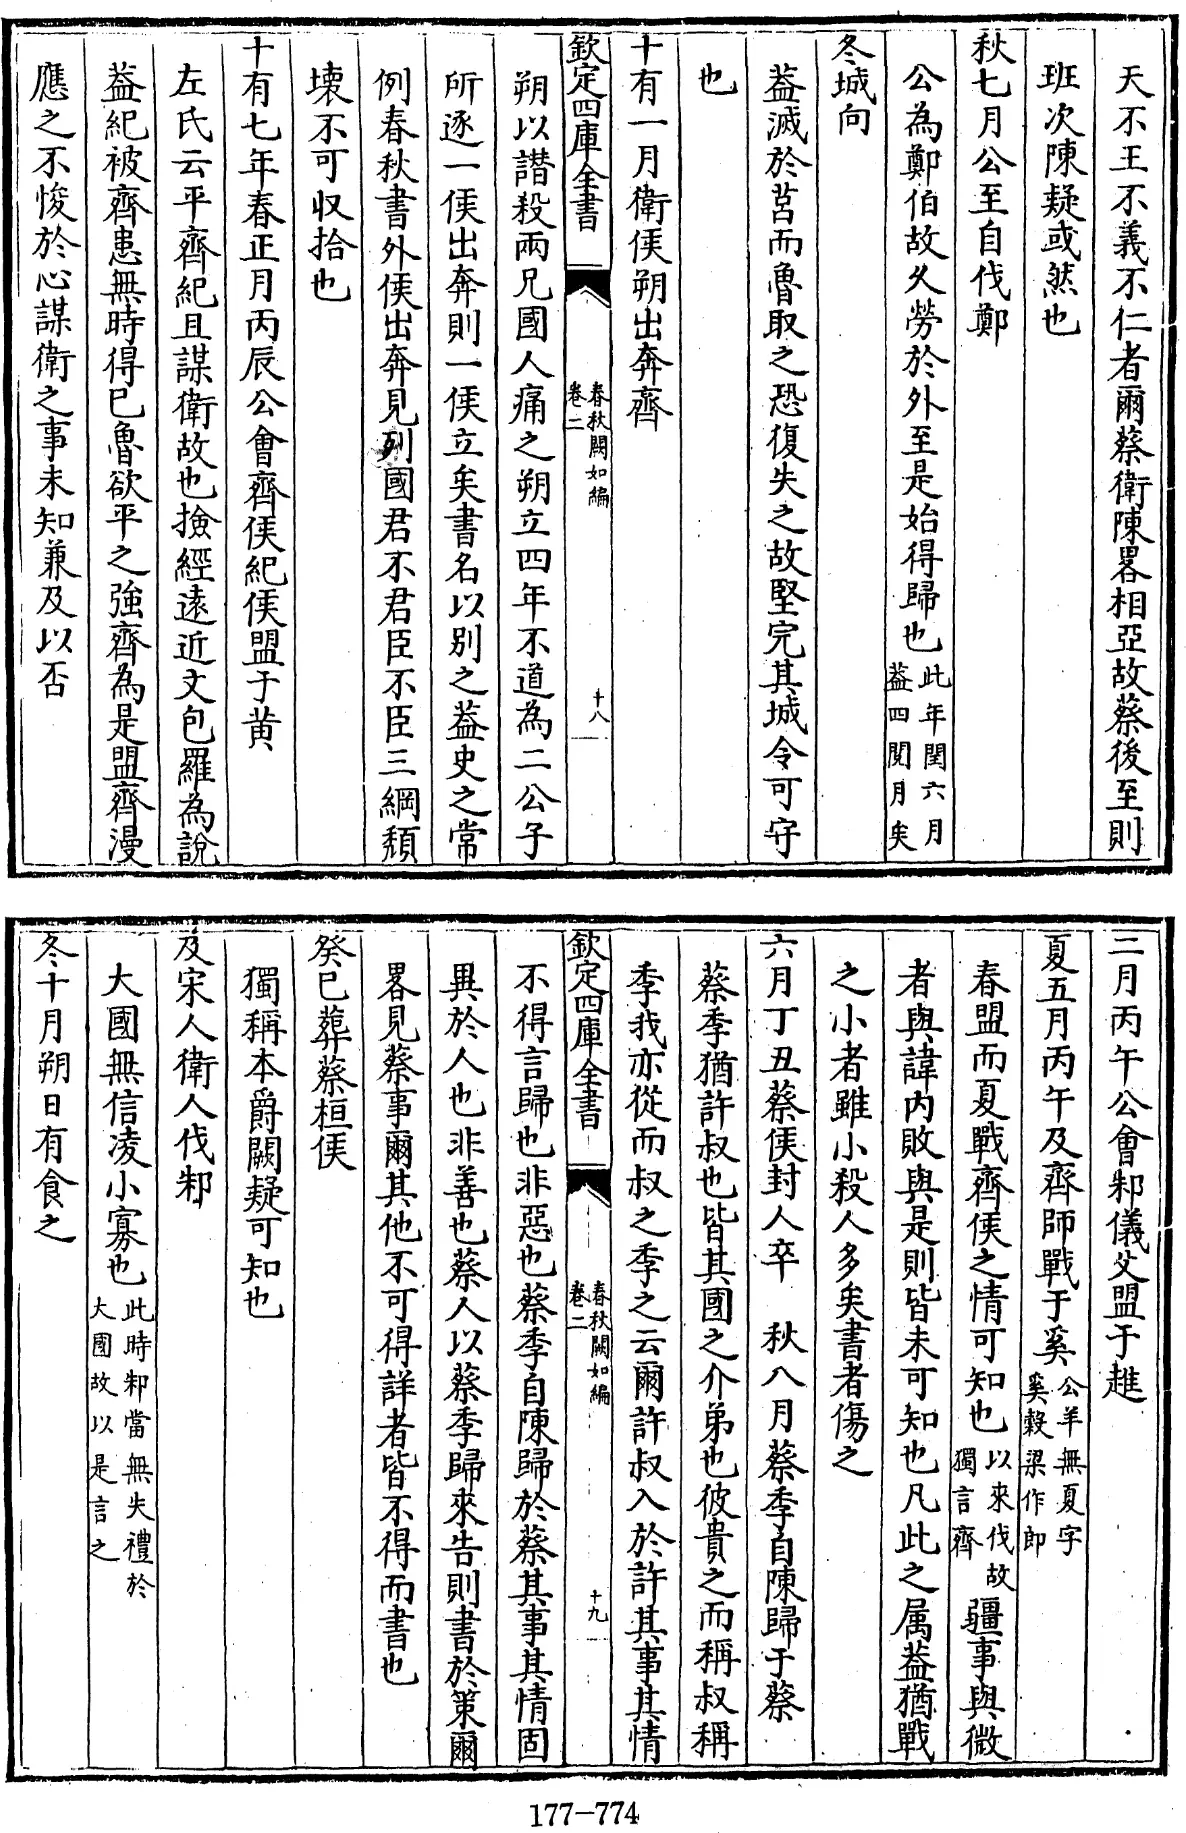 天不王不義不仁者爾蔡衛陳畧相亞故蔡後至則
班次陳疑或然也
秋七月公至自伐鄭
公為鄭伯故久勞於外至是始得歸也此年閏六月蓋四閱月矣
冬城向
葢滅於莒而魯取之恐復失之故堅完其城令可守
也
十有一月衛侯朔出奔齊
欽定四庫全書 春秋闕如編卷二 十八
朔以譖殺兩兄國人痛之朔立四年不道為二公子
所逐一侯出奔則一侯立矣書名以別之葢史之常
例春秋書外侯出奔見列國君不君臣不臣三綱頹
壞不可収拾也
十有七年春正月丙辰公會齊侯紀侯盟于黄
左氏云平齊紀且謀衛故也撿經遠近文包羅為說
葢紀被齊患無時得已魯欲平之強齊為是盟齊漫
應之不悛於心謀衛之事未知兼及以否
二月丙午公會邾儀父盟于趡
夏五月丙午及齊師戰于奚公羊無夏字奚穀梁作郎
春盟而夏戰齊侯之情可知也以來伐故獨言齊疆事與微
者與諱内敗與是則皆未可知也凡此之属葢猶戰
之小者雖小殺人多矣書者傷之
六月丁丑蔡侯封人卒 秋八月蔡季自陳歸于蔡
蔡季猶許叔也皆其國之介弟也彼貴之而稱叔稱
季我亦從而叔之季之云爾許叔入於許其事其情
欽定四庫全書 春秋闕如編卷二 十九
不得言歸也非惡也蔡季自陳歸於蔡其事其情固
異於人也非善也蔡人以蔡季歸來告則書於策爾
畧見蔡事爾其他不可得詳者皆不得而書也
癸巳葬蔡桓侯
獨稱本爵闕疑可知也
及宋人衛人伐邾
大國無信凌小寡也此時邾當無失禮於大國故以是言之
冬十月朔日有食之
177-774